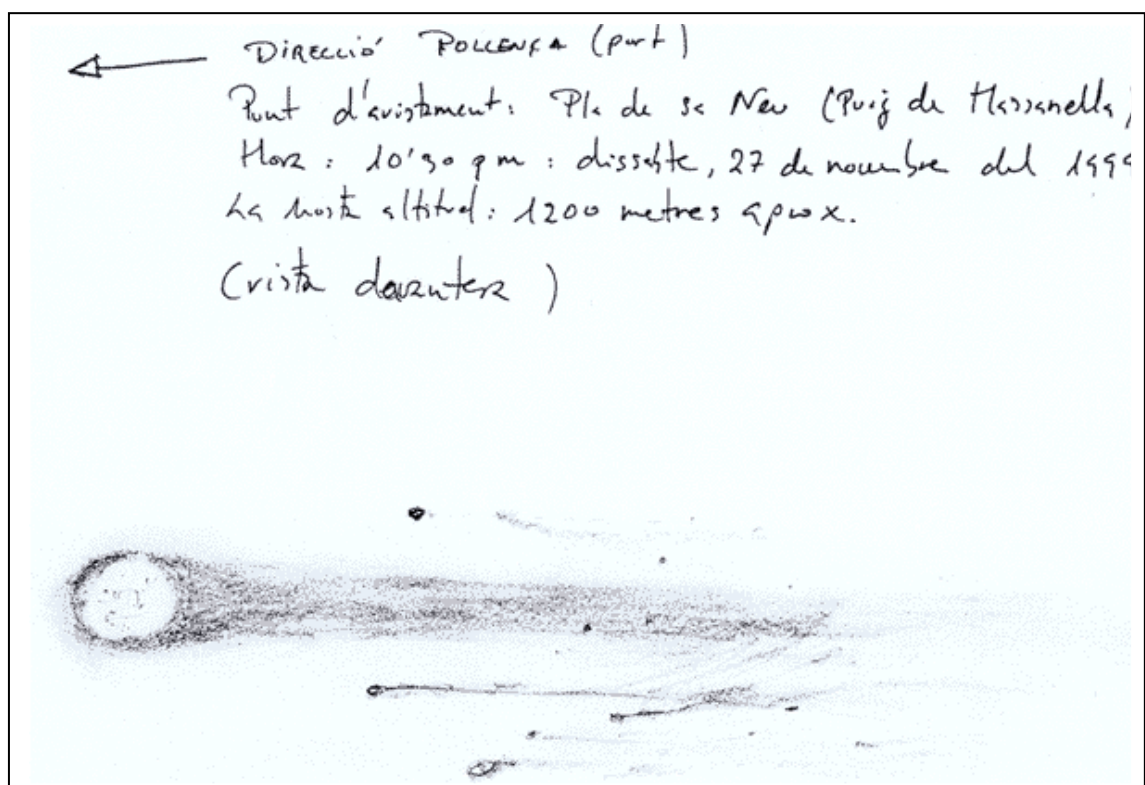 DIRECCIÓ POLLENÇA (port)
Punt d'avistament: Pla de sa Neu (Puig de Massanella)
Hora: 10'30 pm: dissabte, 27 de novembre del 1999
La nostra altitud: 1200 metres aprox.
(vista davantera)